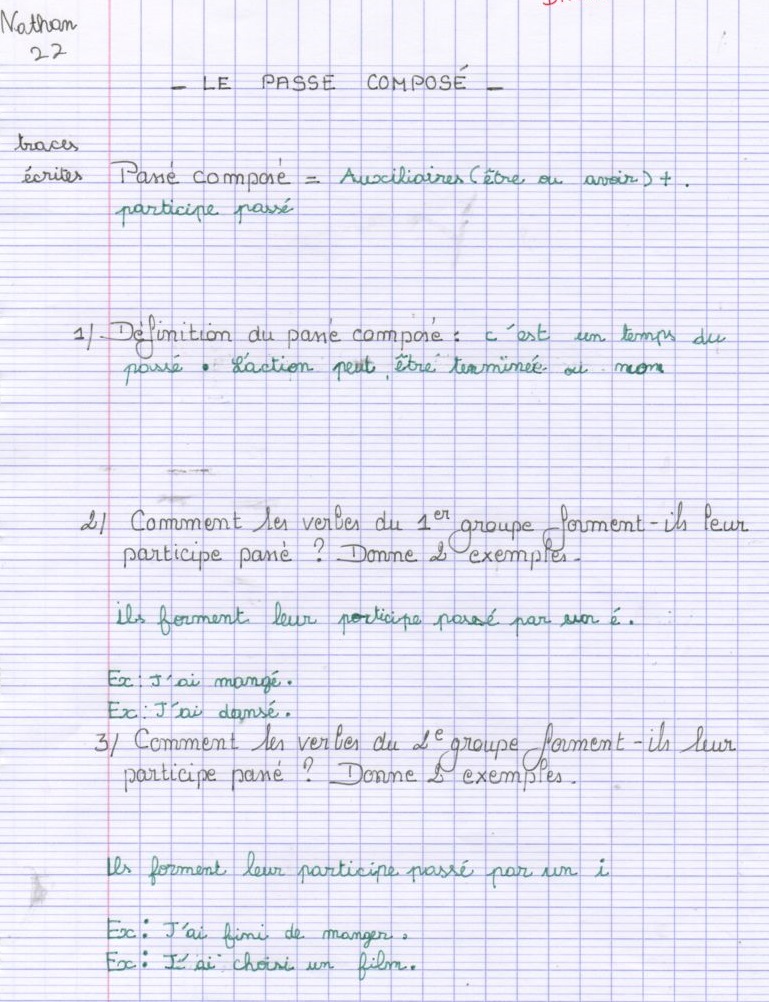 Nathan
22
- LE PASSE COMPOSÉ -
traces
écrites
Passé composé = Auxiliaires (être ou avoir) + .
participe passé
1/- Définition du passé composé : c'est un temps du
passé . L'action peut être terminée ou non
2/ Comment les verbes du 1er groupe forment-ils leur
participe passé ? Donne 2 exemples.
ils forment leur participe passé par un é.
Ex : J'ai mangé.
Ex : J'ai dansé.
3/ Comment les verbes du 2e groupe forment-ils leur
participe passé ? Donne 2 exemples.
Ils forment leur participe passé par un i
Ex : J'ai fini de manger.
Ex : J'ai choisi un film.